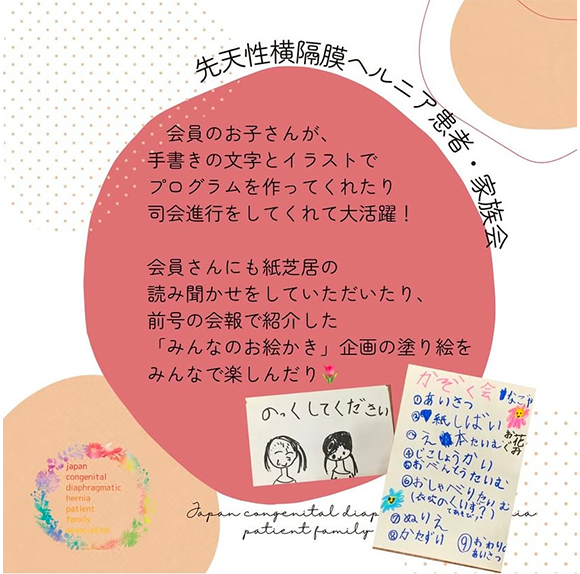 先天性横隔膜ヘルニア患者・家族会
会員のお子さんが、
手書きの文字とイラストで
プログラムを作ってくれたり
司会進行をしてくれて大活躍！
会員さんにも紙芝居の
読み聞かせをしていただいたり、
前号の会報で紹介した
「みんなのお絵かき」企画の塗り絵を
みんなで楽しんだり🌷
のっくしてください
かぞく会
なごや
お花み
①あいさつ
紙しばい
え本たいむ
④じこしょうかい
おべんとうたいむ
⑥おしゃべりたいむ
⑦ぬりえ
⑧かたずい
⑨おわりの
あいさつ
japan
congenital
diaphragmatic
hernia
patient
family
association
Japan congenital
patient family